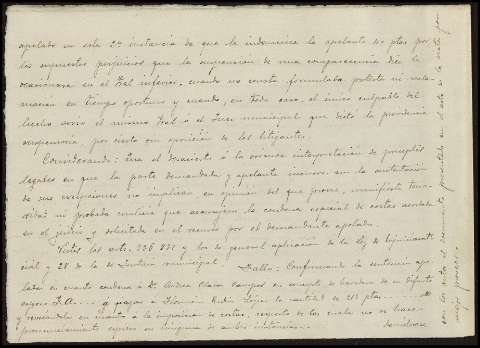 apelado en esta 2ª instancia de que la indemnice la apelante de ptas por
los supuestos perjuicios que la suspension de una comparecencia dice le
ocasionara en el Tral inferior, cuando no consta formulada protesta ni recla-
macion en tiempo oportuno y cuando, en todo caso, el unico culpable del
hecho seria el mismo Tral ó el Juez municipal que dictó la providencia
suspensoria, por cierto sin oposición de los litigantes.
Considerando: Que el desacierto ó la erronea interpretación de preceptos
legales en que la parte demandada y apelante incurra en la sustentación
de sus excepciones no implican, en opinión del que provee, manifiesta teme-
ridad ni probada conducta que aconsejen la condena especial de costas acordada
en el juicio y solicitada en el recurso por el demandante apelado.
Vistos los arts. 336 y los de general aplicación de la ley de Enjuiciamiento
civil y 28 de la de Justicia municipal. Fallo: Confirmando la sentencia ape-
lada en cuanto condena á Dª Andrea Campos en concepto de heredera de su difunto
esposo á pagar á Florencio Rubio la cantidad de 213 ptas
y revocándola en cuanto á la imposición de costas, respecto de las cuales no se hace
pronunciamiento expreso en ninguna de ambas instancias.